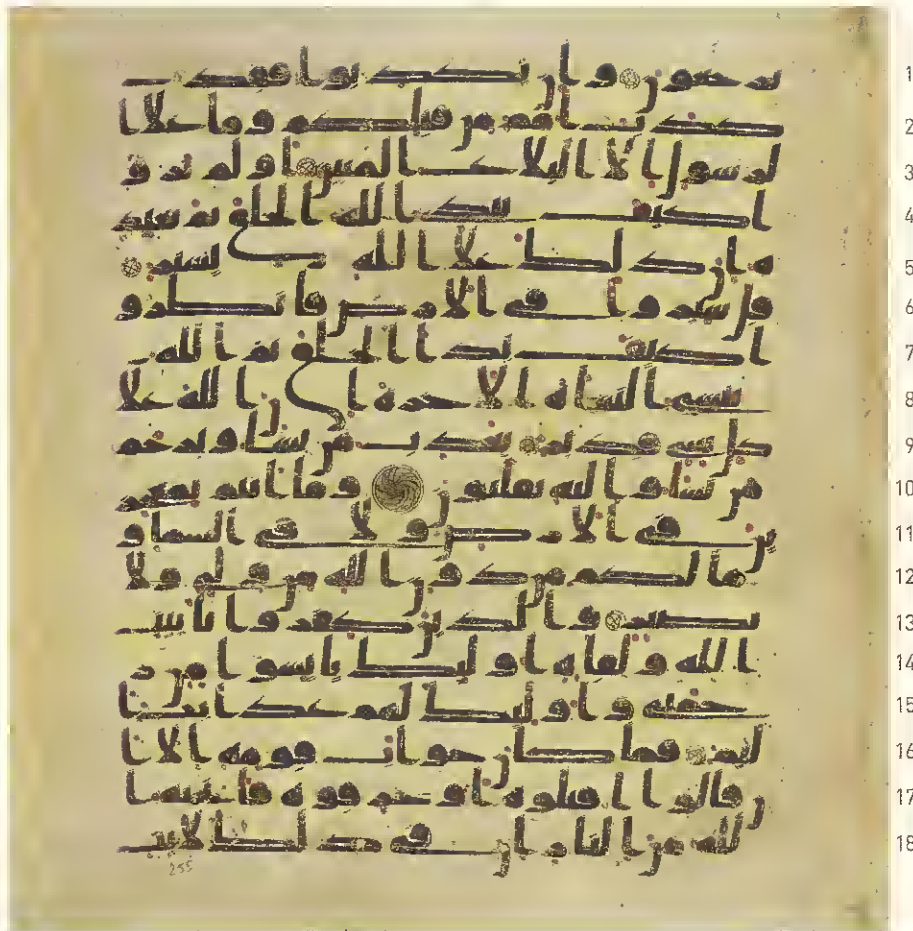 1 ترجعون وان تكذبوا فقد
2 كذب امم من قبلكم وما علا ا
3 لرسول الا البلاغ المبين اولم يرو
4 ا كيف يبدئ الله الخلق ثم يعيد
5 ه ان ذلك علا الله يسير
6 قل سيروا في الارض فانظرو
7 ا كيف بدا الخلق ثم الله
8 ينشئ النشاه الاخره ان الله علا
9 كل شي قدير يعذب من يشا ويرحم
10 من يشا واليه تقلبون وما انتم بمعجز
11 ين في الارض ولا في السما و
12 ما لكم من دون الله من ولي ولا
13 نصير والذين كفروا بايت
14 الله ولقايه اوليك يئسوا من ر
15 حمتي واوليك لهم عذاب ا
16 ليم فما كان جواب قومه الا ا
17 ن قالوا اقتلوه او حرقوه فانجيه ا
18 لله من النار ان في ذلك لايت
255